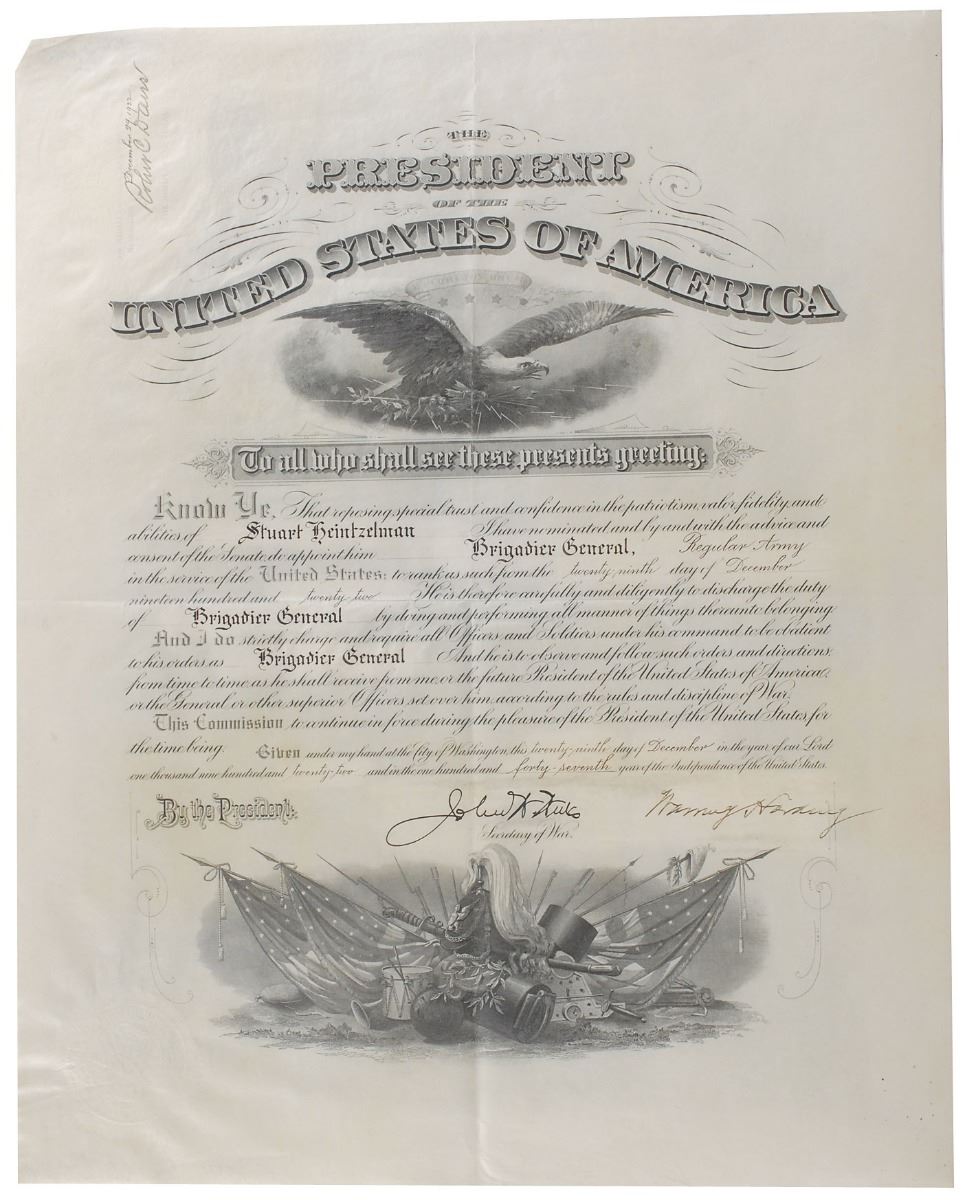 December 29, 1922
THE
PRESIDENT
OF THE
UNITED STATES OF AMERICA
To all who shall see these presents greeting:
Know Ye, That reposing special trust and confidence in the patriotism, valor, fidelity, and
abilities of Stuart Heintzelman I have nominated and by and with the advice and
consent of the Senate do appoint him Brigadier General, Regular Army
in the service of the United States: to rank as such from the twenty-ninth day of December
nineteen hundred and twenty two He is therefore carefully and diligently to discharge the duty
of Brigadier General by doing and performing all manner of things thereunto belonging
And I do strictly charge and require all Officers and Soldiers under his command to be obedient
to his orders as Brigadier General And he is to observe and follow such orders and directions,
from time to time, as he shall receive from me, or the future President of the United States of America,
or the General or other superior Officers set over him, according to the rules and discipline of War.
This Commission to continue in force during the pleasure of the President of the United States for
the time being. Given under my hand at the City of Washington, this twenty-ninth day of December in the year of our Lord
one thousand nine hundred and twenty-two and in the one hundred and forty-seventh year of the Independence of the United States.
By the President:
Warren G Harding
Secretary of War.